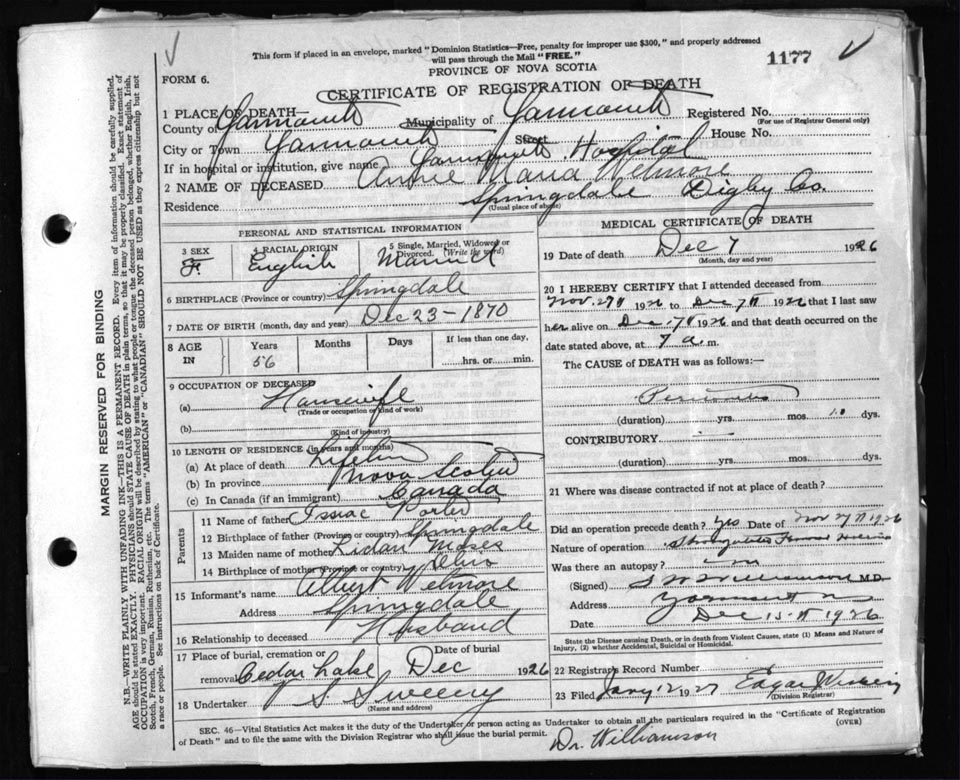 This form if placed in an envelope, marked "Dominion Statistics—Free, penalty for improper use $300," and properly addressed
will pass through the Mail "FREE."
1177
PROVINCE OF NOVA SCOTIA
FORM 6.
CERTIFICATE OF REGISTRATION OF DEATH
1 PLACE OF DEATH—
County of Yarmouth Municipality of Yarmouth Registered No.
(For use of Registrar General only)
City or Town Yarmouth Street House No.
If in hospital or institution, give name Yarmouth Hospital
2 NAME OF DECEASED Annie Maria Wetmore
Residence Springdale Digby Co.
(Usual place of abode)
PERSONAL AND STATISTICAL INFORMATION
3 SEX F
4 RACIAL ORIGIN English
5 Single, Married, Widowed or Divorced. (Write the word) Married
6 BIRTHPLACE (Province or country) Springdale
7 DATE OF BIRTH (month, day and year) Dec 23-1870
8 AGE IN Years Months Days If less than one day,
56 hrs. or min.
9 OCCUPATION OF DECEASED
(a) Housewife
(Trade or occupation or kind of work)
(b)
(Kind of industry)
10 LENGTH OF RESIDENCE (in years and months)
(a) At place of death Lifetime
(b) In province Nova Scotia
(c) In Canada (if an immigrant) Canada
Parents
11 Name of father Issiac Porter
12 Birthplace of father (Province or country) Springdale
13 Maiden name of mother Moses
14 Birthplace of mother (Province or country)
15 Informant's name Albert Wetmore
Address Springdale
16 Relationship to deceased Husband
17 Place of burial, cremation or removal Cedar Lake Date of burial Dec 1926
18 Undertaker S Sweeny
(Name and address)
MEDICAL CERTIFICATE OF DEATH
19 Date of death Dec 7 1926
(Month, day and year)
20 I HEREBY CERTIFY that I attended deceased from
Nov. 27th 1926 to Dec 7th 1926 that I last saw
her alive on Dec 7th 1926 and that death occurred on the
date stated above, at 7 a.m.
The CAUSE of DEATH was as follows:—
Peritonitis
(duration) yrs. mos. 10 dys.
CONTRIBUTORY
(duration) yrs. mos. dys.
21 Where was disease contracted if not at place of death?
Did an operation precede death? Yes Date of Nov 27th 1926
Nature of operation Strangulated Femoral Hernia
Was there an autopsy? no
(Signed) Williamson M.D.
Address Yarmouth
Date Dec 15th 1926
State the Disease causing Death, or in death from Violent Causes, state (1) Means and Nature of
Injury, (2) whether Accidental, Suicidal or Homicidal.
22 Registrar's Record Number
23 Filed Jany 12 1927 Edgar
(Division Registrar)
SEC. 46—Vital Statistics Act makes it the duty of the Undertaker or person acting as Undertaker to obtain all the particulars required in the "Certificate of Registration
of Death" and to file the same with the Division Registrar who shall issue the burial permit. (OVER)
Dr. Williamson
MARGIN RESERVED FOR BINDING
N.B.—WRITE PLAINLY WITH UNFADING INK—THIS IS A PERMANENT RECORD. Every item of information should be carefully supplied.
AGE should be stated EXACTLY. PHYSICIANS should STATE CAUSE OF DEATH in plain terms, so that it may be properly classified. Exact statement of
OCCUPATION is very important. RACIAL ORIGIN will be described by stating to what people or tongue the deceased person belonged, whether English, Irish,
Scotch, French, German, Russian, Ruthenian, etc. The terms "AMERICAN" or "CANADIAN" SHOULD NOT BE USED as they express citizenship but not
a race or people. See instructions on back of Certificate.